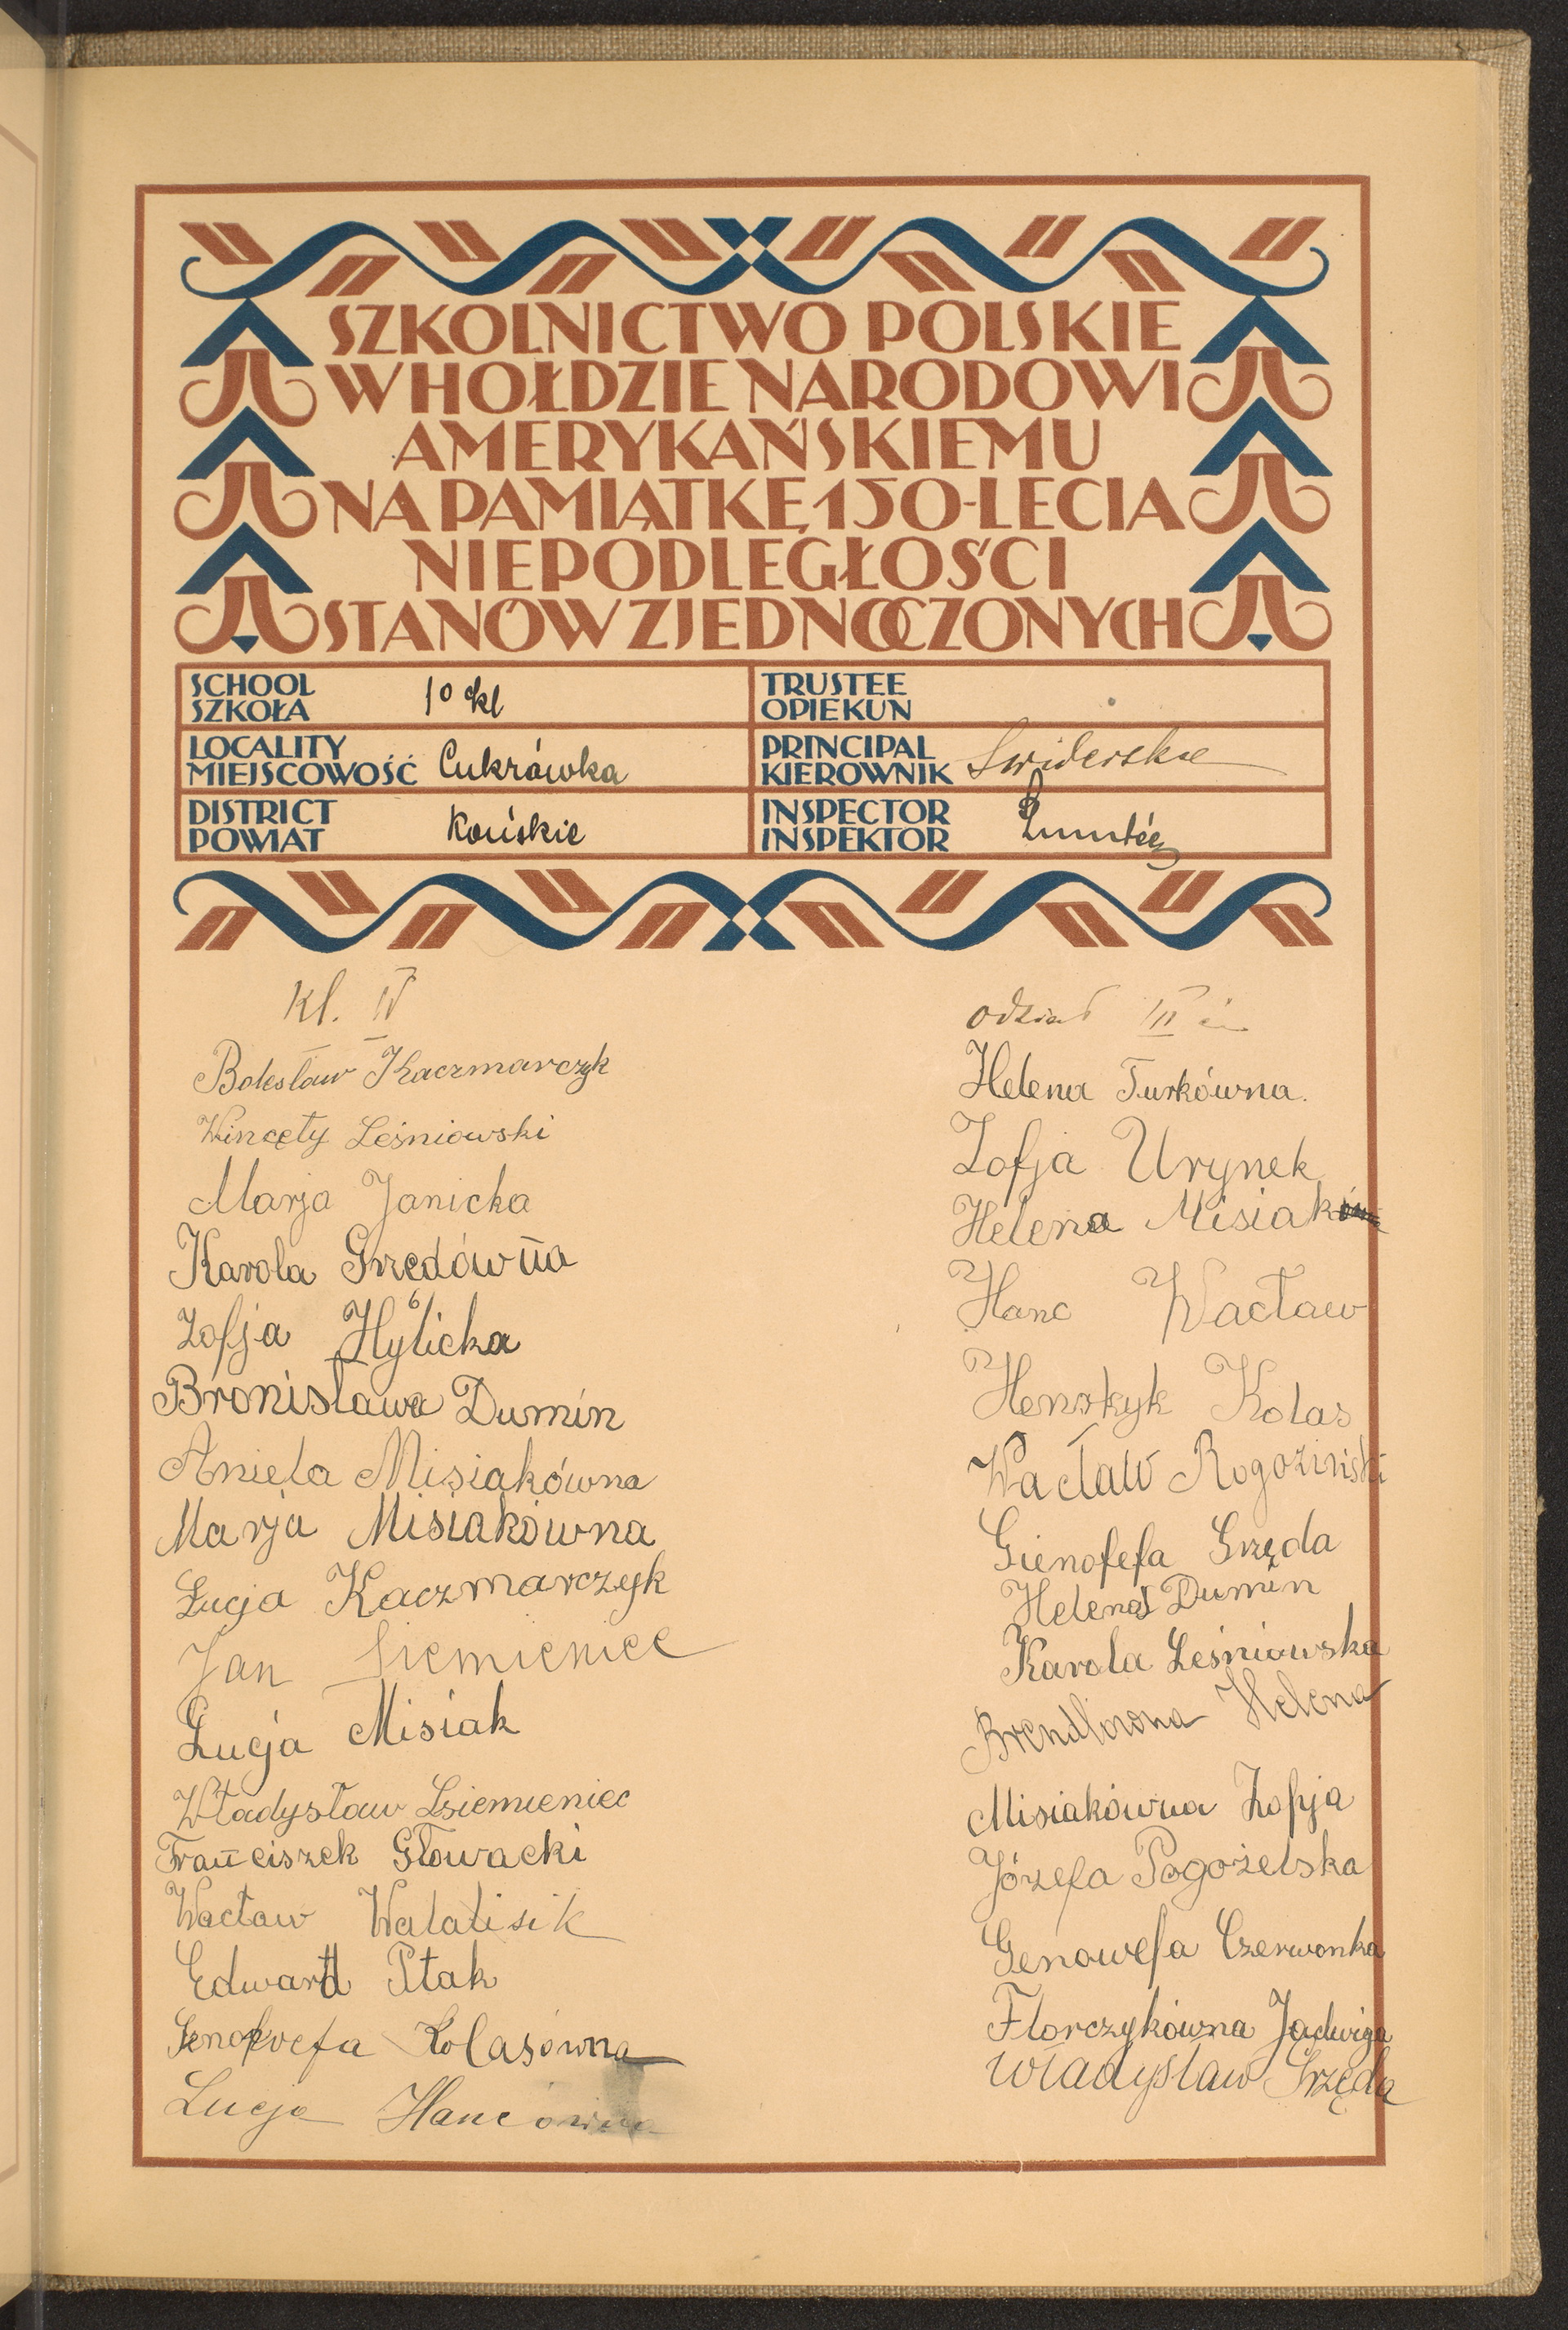 SZKOLNICTWO POLSKIE
W HOŁDZIE NARODOWI
AMERYKAŃSKIEMU
NA PAMIĄTKĘ 150-LECIA
NIEPODLEGŁOŚCI
STANÓW ZJEDNOCZONYCH
SCHOOL
SZKOŁA
1º kl
TRUSTEE
OPIEKUN
LOCALITY
MIEJSCOWOŚĆ
Cukrówka
PRINCIPAL
KIEROWNIK
DISTRICT
POWIAT
Końskie
INSPECTOR
INSPEKTOR
kl. IV
Bolesław Kaczmarczyk
Wincęty Leśniowski
Marja Janicka
Karola Grzędówna
Zofja Hylicka
Bronisława Dumin
Aniela Misiakówna
Marja Misiakówna
Łucja Kaczmarczyk
Jan Siemieniec
Łucja Misiak
Władysław Lsiemieniec
Franciszek Głowacki
Wacław Walalisik
Edward Ptak
Kolasówna
Łucja Hancówna
odział III
Helena Turkówna.
Zofja Urynek
Helena Misiak
Hanc Wacław
Henrkyk Kolas
Wacław Rogoziński
Gienofefa Grzęda
Helena Dumin
Karola Leśniowska
Brendlowna Helena
Misiakówna Zofja
Józefa Pogożelska
Genowefa Czerwonka
Florczykówna Jadwiga
Władysław Grzęda